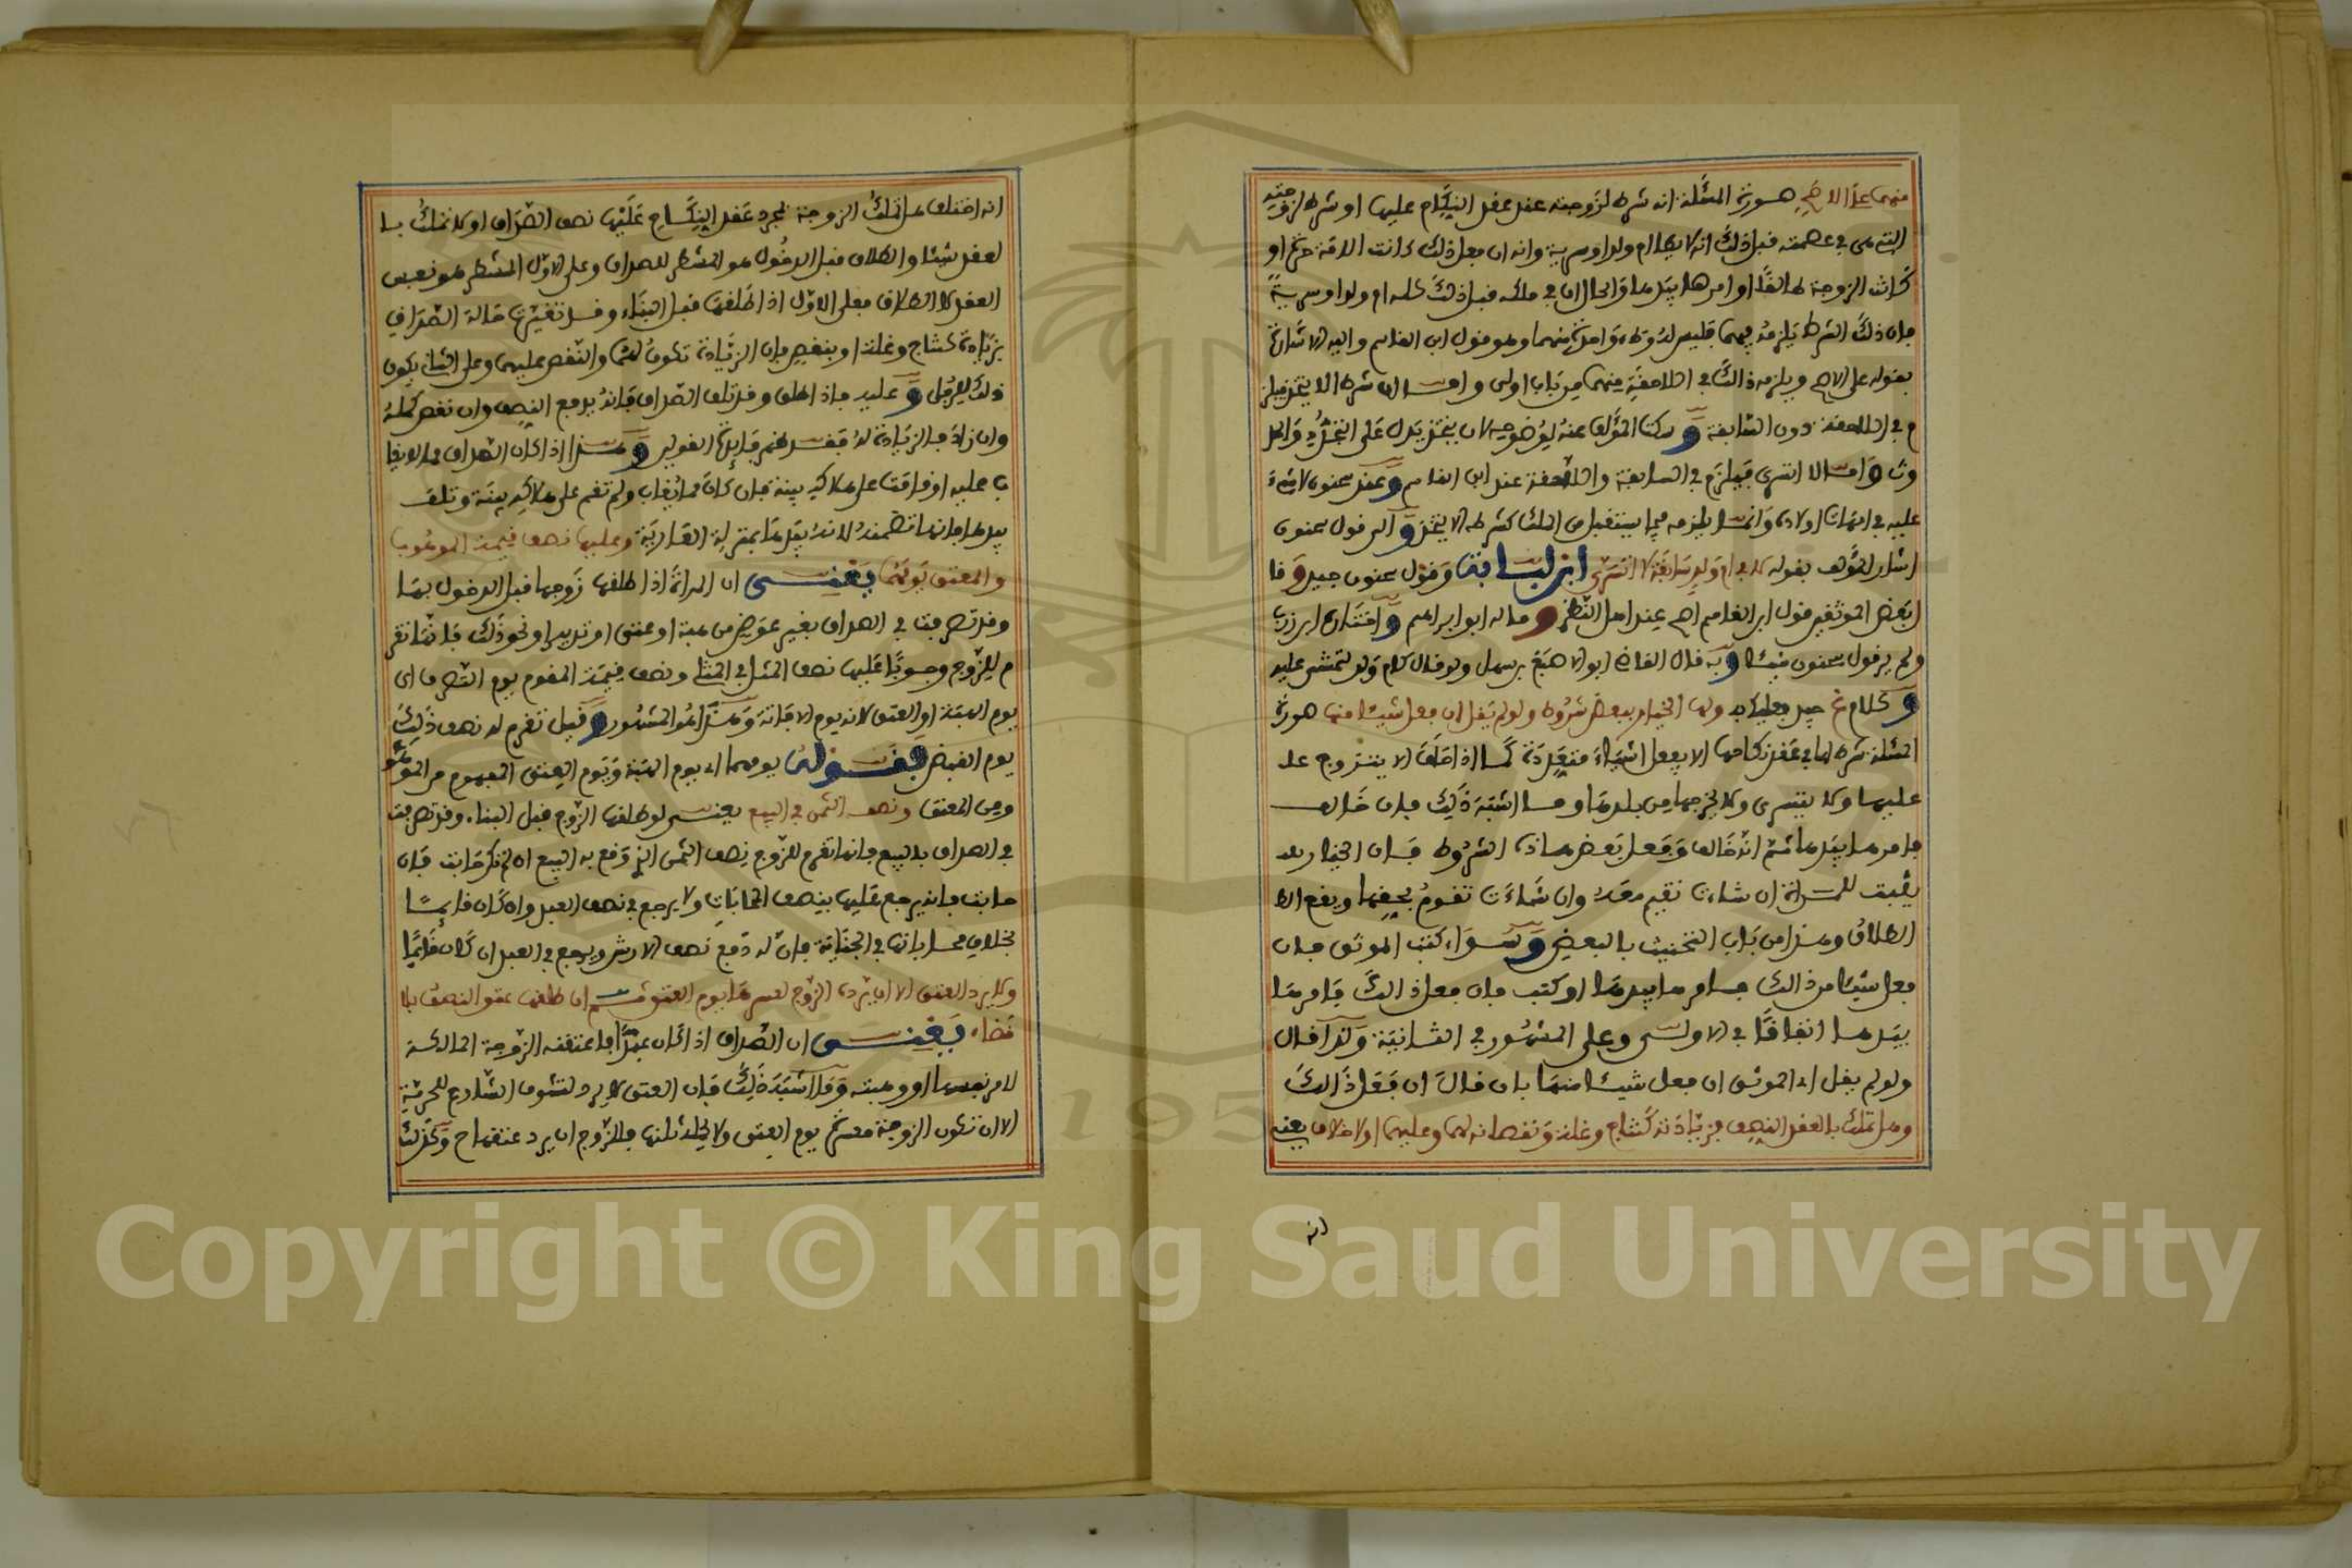 منهما على الاصح صورة المسئلة انه شرط لزوجته عند عقد النكاح عليها او شرط لزوجته
التي في عصمته قبل ذلك انه لا يطا ام ولد او سرية وانه ان فعل ذلك كانت الامة حرة او
كانت الزوجة طالقا او امرها بيدها والحال ان في ملكه قبل ذلك كله ام ولد او سرية
فان ذلك الشرط يلزمه فيهما فليس له وطء واحدة منهما وهو قول ابن القاسم واليه الاشارة
بقوله على الاصح ويلزمه ذلك في اللاحقة منهما من باب اولى واما ان شرط الا يتخذ فيلز
م في اللاحقة دون السابقة وسكت المؤلف عنه لوضوحه لان يتخذ يدل على التجدد والحد
وث واما لا اتسرى فيلزم في السابقة واللاحقة عند ابن القاسم وعند سحنون لا شيء
عليه في امهات اولاده وانما يلزمه فيما يستقبل من الملك كشرطه الا يتخذ والى قول سحنون
اشار المؤلف بقوله لا في ام ولد سابقة في لا اتسرى ابن لبابة وقول سحنون جيد وقا
ل بعض الموثقين قول ابن القاسم اصح عند اهل النظر وقاله ابو ابراهيم واختاره ابن زرب
ولم ير قول سحنون شيئا وبه قال القاضي ابو الاصبغ بن سهل
ولها الخيار ببعض شروط ولو لم يقل ان فعل شيئا منها صورة
المسئلة شرط لها في عقد نكاحها الا يفعل اشياء متعددة كما اذا الا يتزوج علـ
عليها ولا يتسرى ولا يخرجها من بلدها وما اشبه ذلك فان خالف
فامرها بيدها ثم انه خالف وفعل بعض هاذه الشروط فان الخيار
يثبت للمراة ان شاءت تقيم معه وان شاءت تقوم بحقها ويقع الط
الطلاق وهذا من باب التحنيث بالبعض وسواء كتب الموثق فان
فعل شيئا من ذالك فامرها بيدها او كتب فان فعل ذالك فامرها
بيدها اتفاقا في الاولى وعلى المشهور في الثانية ولذا قال
ولو لم يقل اى الموثق ان فعل شيئا منها بان قال ان فعل ذالك
وهل تملك بالعقد النصف فزيادته كنتاج وغلة ونقصانه لهما وعليهما اولا خلاف يعني
انه
انه اختلف هل تملك الزوجة بمجرد عقد النكاح عليها نصف الصداق او لا تملك با
لعقد شيئا والطلاق قبل الدخول هو المشطر للصداق وعلى الاول المشطر هو نفس
العقد لا الطلاق فعلى الاول اذا طلقها قبل البناء وقد تغيرت حالة الصداق
بزيادة كنتاج وغلة او بنقص فان الزيادة تكون لهما والنقص عليهما وعلى الثاني يكون
ذلك للرجل وعليه فاذا طلق وقد تلف الصداق فانه يدفع النصف وان نقص كمله
وان زاد فالزيادة له فقد ظهر فائدة القولين وهذا اذا كان الصداق مما لا يغا
ب عليه او قامت على هلاكه بينة فان كان مما يغاب ولم تقم على هلاكه بينة وتلف
بيدها فانها تضمنه لانه بيدها بمنزلة العارية وعليها نصف قيمة الموهوب
والمعتق يومهما يعني ان المراة اذا طلقها زوجها قبل الدخول بها
وقد تصرفت في الصداق بغير عوض من هبة او عتق او تدبير او نحو ذلك فانها تغر
م للزوج وجوبا عليها نصف المثل في المثلي ونصف قيمة المقوم يوم التصرف اى
يوم الهبة او العتق لانه يوم الافاتة وهذا هو المشهور وقيل تغرم له نصف ذلك
يوم القبض فقوله يومهما اى يوم الهبة ويوم العتق المفهوم من الموهو
ومن المعتق ونصف الثمن في البيع يعني لو طلقها الزوج قبل البناء وقد تصرفت
في الصداق بالبيع فانها تغرم للزوج نصف الثمن الذي وقع به البيع ان لم تكن حابت فان
حابت فانه يرجع عليها بنصف المحابات ولا يرجع في نصف العبد ولو كان قايما
بخلاف محاباتها في الجناية فان له دفع نصف الارش ويرجع في العبد ان كان قائما
ولا يرد العتق الا ان يرده الزوج لعسرها يوم العتق ثم ان طلقها عتق النصف بلا
قضاء يعني ان الصداق اذا كان عبدا فاعتقته الزوجة المالكة
لامر نفسها او وهبته وما اشبه ذلك فان العتق لا يرد لتشوف الشارع للحرية
الا ان تكون الزوجة معسرة يوم العتق ولا يحمله ثلثها فللزوج ان يرد عتقها ح وكذلك
Copyright © King Saud University
1957